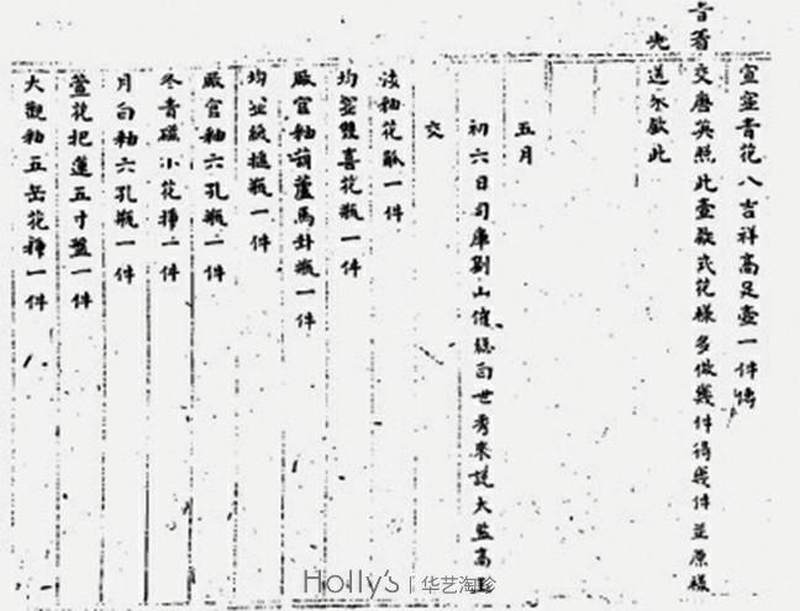 宣窑青花八吉祥高足壺一件傳
旨着交唐英照此壺欵式花樣多做幾件得幾件並原樣
送來欽此
五月
初六日司庫劉山催總白世秀來說太監高玉
交
釉花觚一件
均窑雙喜花瓶一件
廠官釉葫蘆馬卦瓶一件
均窑紙槌瓶一件
廠官釉六孔瓶一件
冬青磁小花揷一件
月白釉六孔瓶一件
萱花把蓮五寸盤一件
大觀釉五岳花揷一件
Holly's | 华艺淘珍